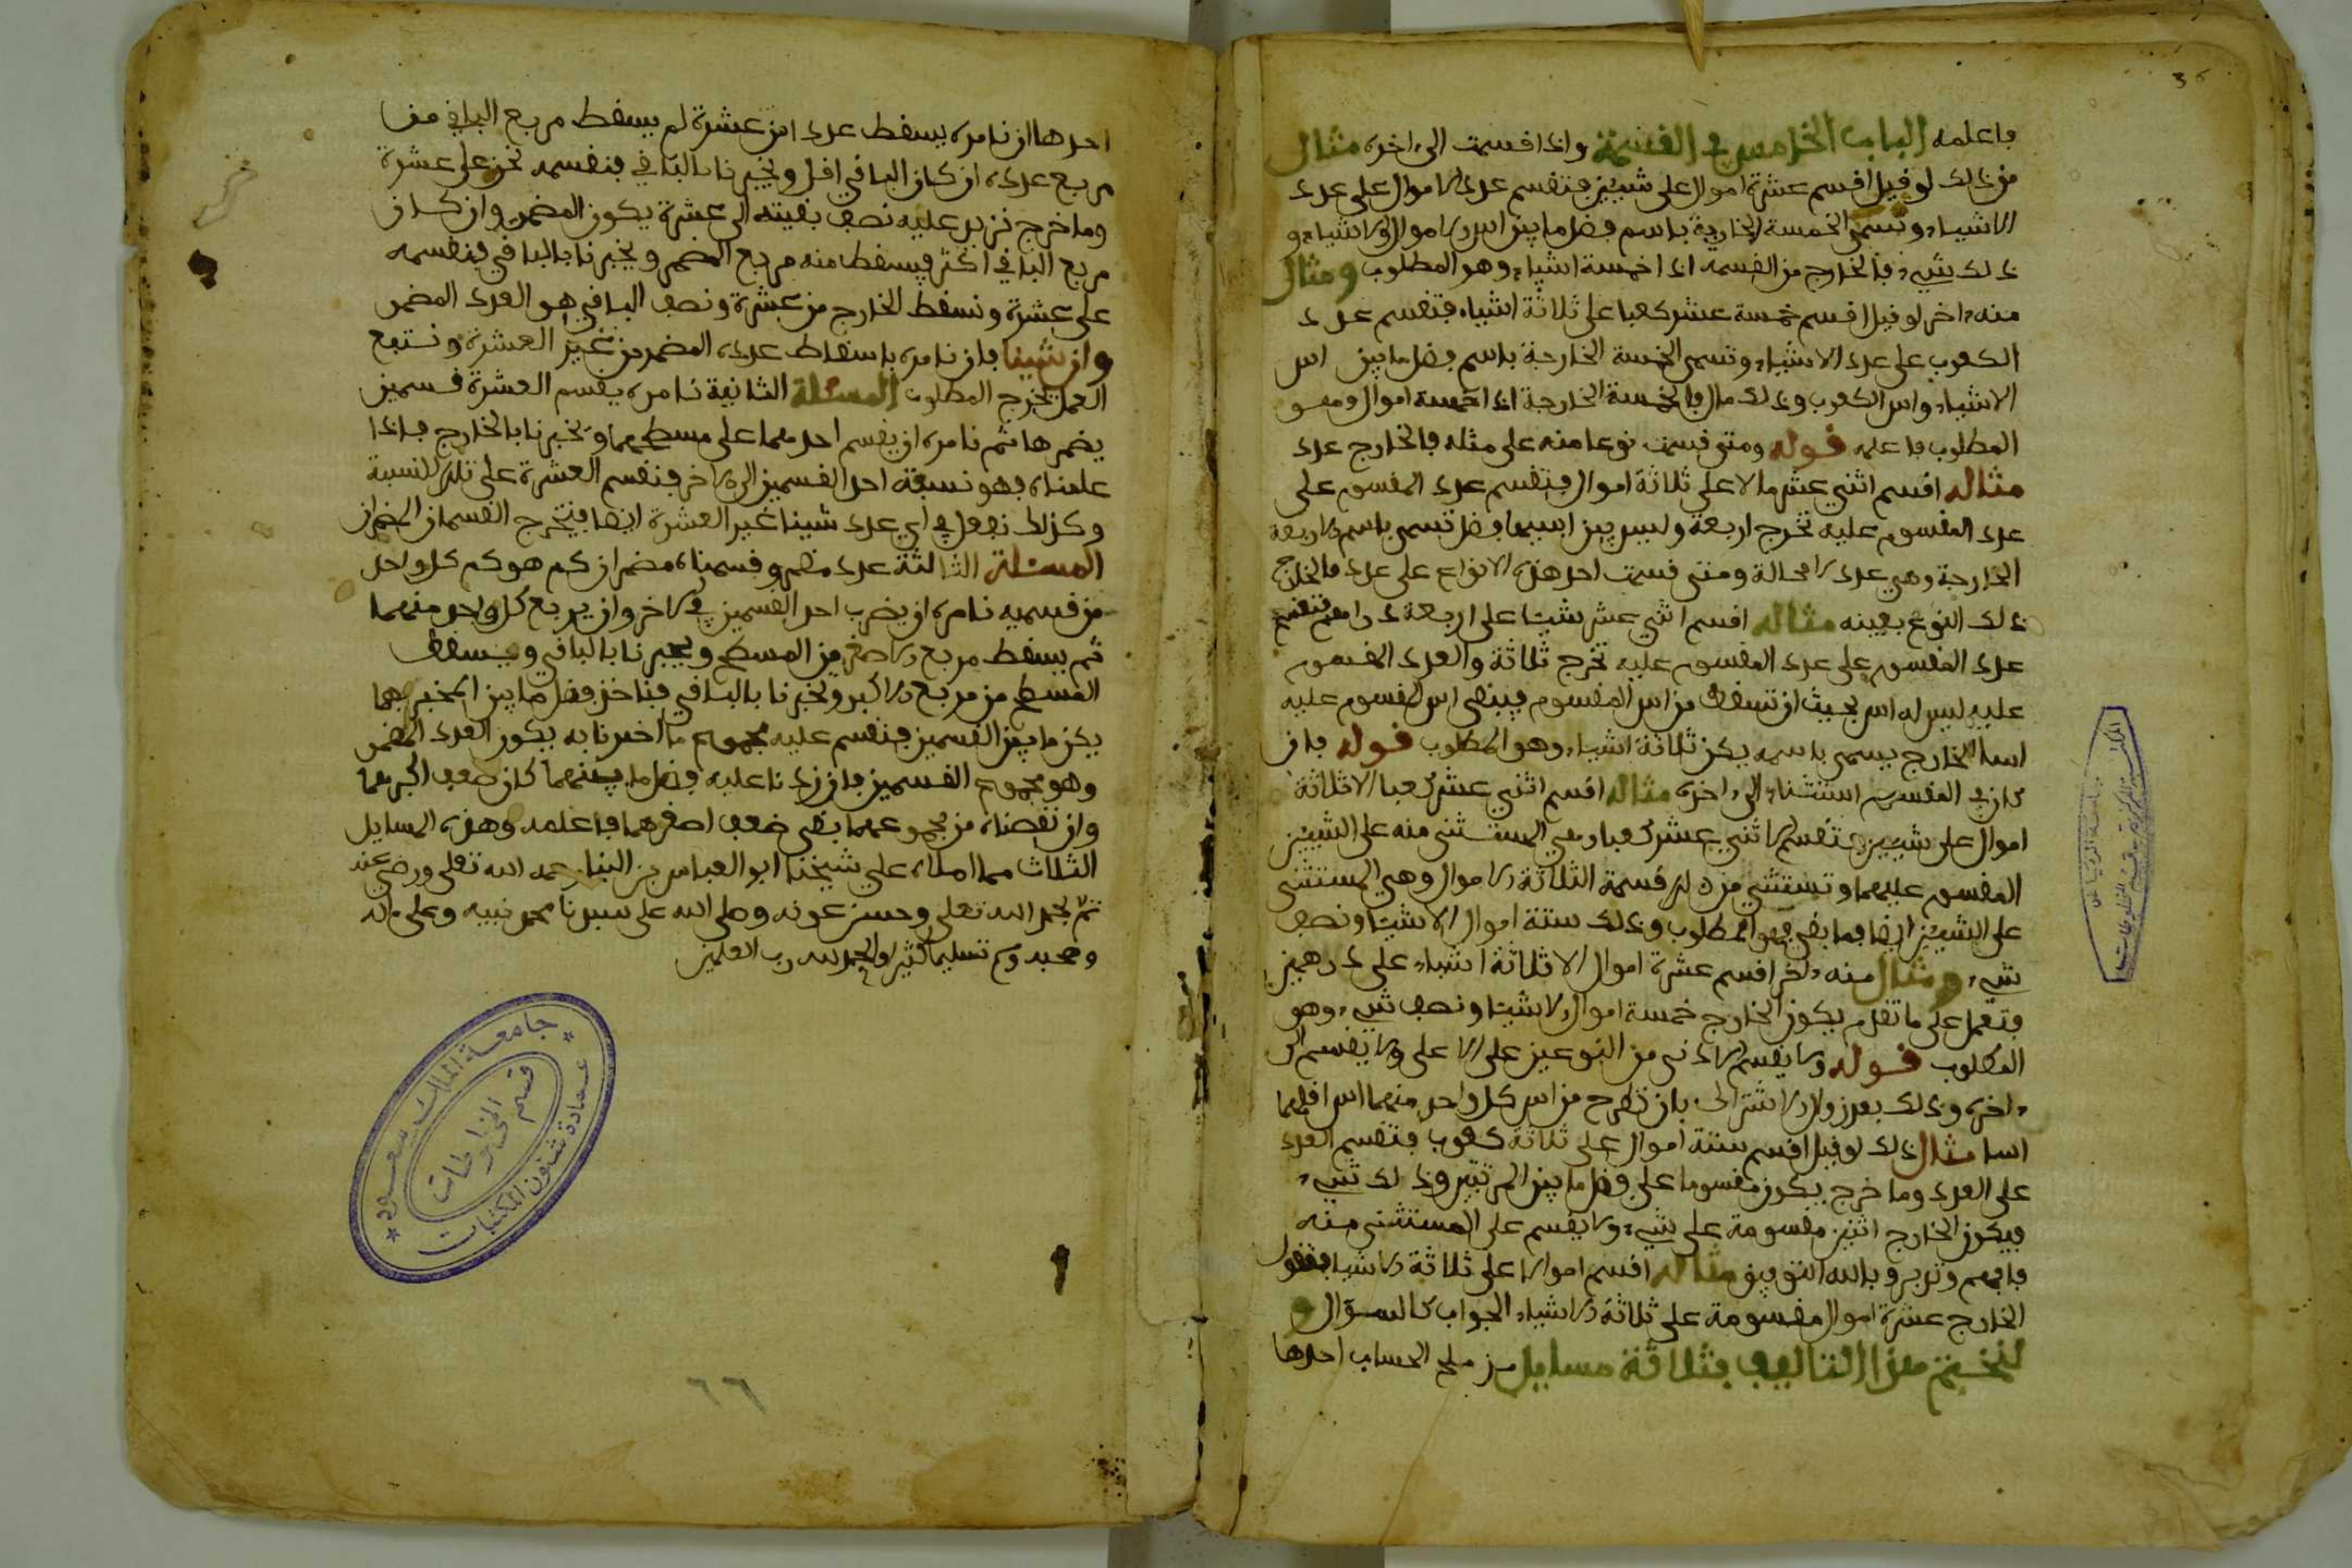 فاعلمه الباب الخامس في القسمة واذا قسمت الى اخره مثال
من ذلك لو قيل اقسم عشرة اموال على شيئين فتقسم عدد الاموال على عدد
الاشياء وتسمى الخمسة الخارجة باسم فضل ما بين اس الاموال والاشياء و
ذلك شيء فالخارج من القسمة اذا خمسة اشياء وهو المطلوب ومثال
منه اخر لو قيل اقسم خمسة عشر كعبا على ثلاثة اشياء فتقسم عدد
الكعوب على عدد الاشياء وتسمى الخمسة الخارجة باسم فضل ما بين اس
الاشياء واس الكعوب وذلك مال فالخمسة الخارجة اذا خمسة اموال وهو
المطلوب فاعلمه قوله ومتى قسمت نوعا منه على مثله فالخارج عدد
مثاله اقسم اثني عشر مالا على ثلاثة اموال فتقسم عدد المقسوم على
عدد المقسوم عليه تخرج اربعة وليس بين اسيهما فضل تسمى باسمه الاربعة
الخارجة وهي عدد لا محالة ومتى قسمت احد هذه الانواع على عدد فالخارج
ذلك النوع بعينه مثاله اقسم اثني عشر شيئا على اربعة دراهم فتقسم
عدد المقسوم على عدد المقسوم عليه تخرج ثلاثة والعدد المقسوم
عليه ليس له اس بحيث ان تسقط من اس المقسوم فيبقى اس المقسوم عليه
اسا للخارج يسمى باسمه يكن ثلاثة اشياء وهو المطلوب قوله فان
كان في المقسوم استثناء الى اخره مثاله اقسم اثني عشر كعبا الا ثلاثة
اموال على شيئين فتقسم الاثني عشر كعبا وهي المستثنى منه على الشيئين
المقسوم عليهما وتستثني من ذلك قسمة الثلاثة الاموال وهي المستثنى
على الشيئين ايضا فما بقي فهو المطلوب وذلك ستة اموال الا شيئا ونصف
شيء ومثال منه اخر اقسم عشرة اموال الا ثلاثة اشياء على درهمين
فتعمل على ما تقدم يكون الخارج خمسة اموال الا شيئا ونصف شيء وهو
المطلوب قوله ولا يقسم الادنى من النوعين على الاعلى ولا يقسم الى
اخره وذلك بعد زوال الاشتراك بان تطرح من اس كل واحد منهما اس اقلهما
اسا مثال ذلك لو قيل اقسم ستة اموال على ثلاثة كعوب فتقسم العدد
على العدد وما خرج يكون مقسوما على فضل ما بين المرتبتين وذلك شيء
فيكون الخارج اثنين مقسومة على شيء ولا يقسم على المستثنى منه
فافهم وتدبر وبالله التوفيق مثاله اقسم اموالا على ثلاثة الا شيئا فتقول
الخارج عشرة اموال مقسومة على ثلاثة الا شيئا الجواب كالسؤال و
لنختم هذا التاليف بثلاثة مسايل من ملح الحساب احدها
احدها ان نامره يسقط عددا من عشرة ثم يسقط مربع الباقي من
مربع عدده ان كان الباقي اقل ويخبرنا بالباقي فنقسمه نحن على عشرة
وما خرج نزيد عليه نصف بقيته الى عشرة يكون المضمر وان كان
مربع الباقي اكثر فيسقط منه مربع المضمر ويخبرنا بالباقي فنقسمه
على عشرة ونسقط الخارج من عشرة ونصف الباقي هو العدد المضمر
وان شينا فان نامره باسقاط عدده المضمر من غير العشرة ونتبع
العمل يخرج المطلوب المسئلة الثانية نامره يقسم العشرة قسمين
يضمرها ثم نامره ان يقسم احدهما على مسطحهما ويخبرنا بالخارج فاذا
علمناه فهو نسبة احد القسمين الى الاخر فنقسم العشرة على تلك النسبة
وكذلك نفعل في اي عدد شينا غير العشرة ايضا فيخرج القسمان المضمران
المسئلة الثالثة عدد مضمر وقسمناه مضمران كم هو كم كل واحد
من قسميه نامره ان يضرب احد القسمين في الاخر وان يربع كل واحد منهما
ثم يسقط مربع الاصغر من المسطح ويخبرنا بالباقي ويسقط
المسطح من مربع الاكبر ويخبرنا بالباقي فناخذ فضل ما بين المخبر بهما
يكن ما بين القسمين فنقسم عليه مجموع ما اخبرنا به يكون العدد المضمر
وهو مجموع القسمين فان زدنا عليه فضل ما بينهما كان ضعف اكبرهما
وان نقصناه من مجموعهما بقي ضعف اصغرهما فاعلمه وهذه المسايل
الثلاث مما املاه علي شيخنا ابو العباس بن البنا رحمه الله تعلى ورضي عنه
تم بحمد الله تعلى وحسن عونه وصلى الله على سيدنا محمد نبيه وعلى اله
وصحبه وسلم تسليما كثيرا والحمد لله رب العلمين
جامعة الملك سعود
عمادة شئون المكتبات
قسم المخطوطات
٦٦